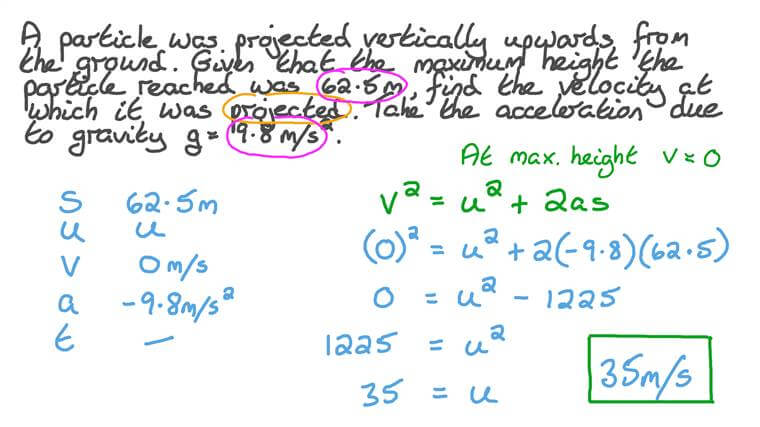 A particle was projected vertically upwards from
the ground. Given that the maximum height the
particle reached was 62.5m, find the velocity at
which it was projected. Take the acceleration due
to gravity g = 9.8 m/s².
At max. height v = 0
S 62.5m
u u
v 0 m/s
a -9.8m/s²
t —
v² = u² + 2as
(0)² = u² + 2(-9.8)(62.5)
0 = u² - 1225
1225 = u²
35 = u
35m/s